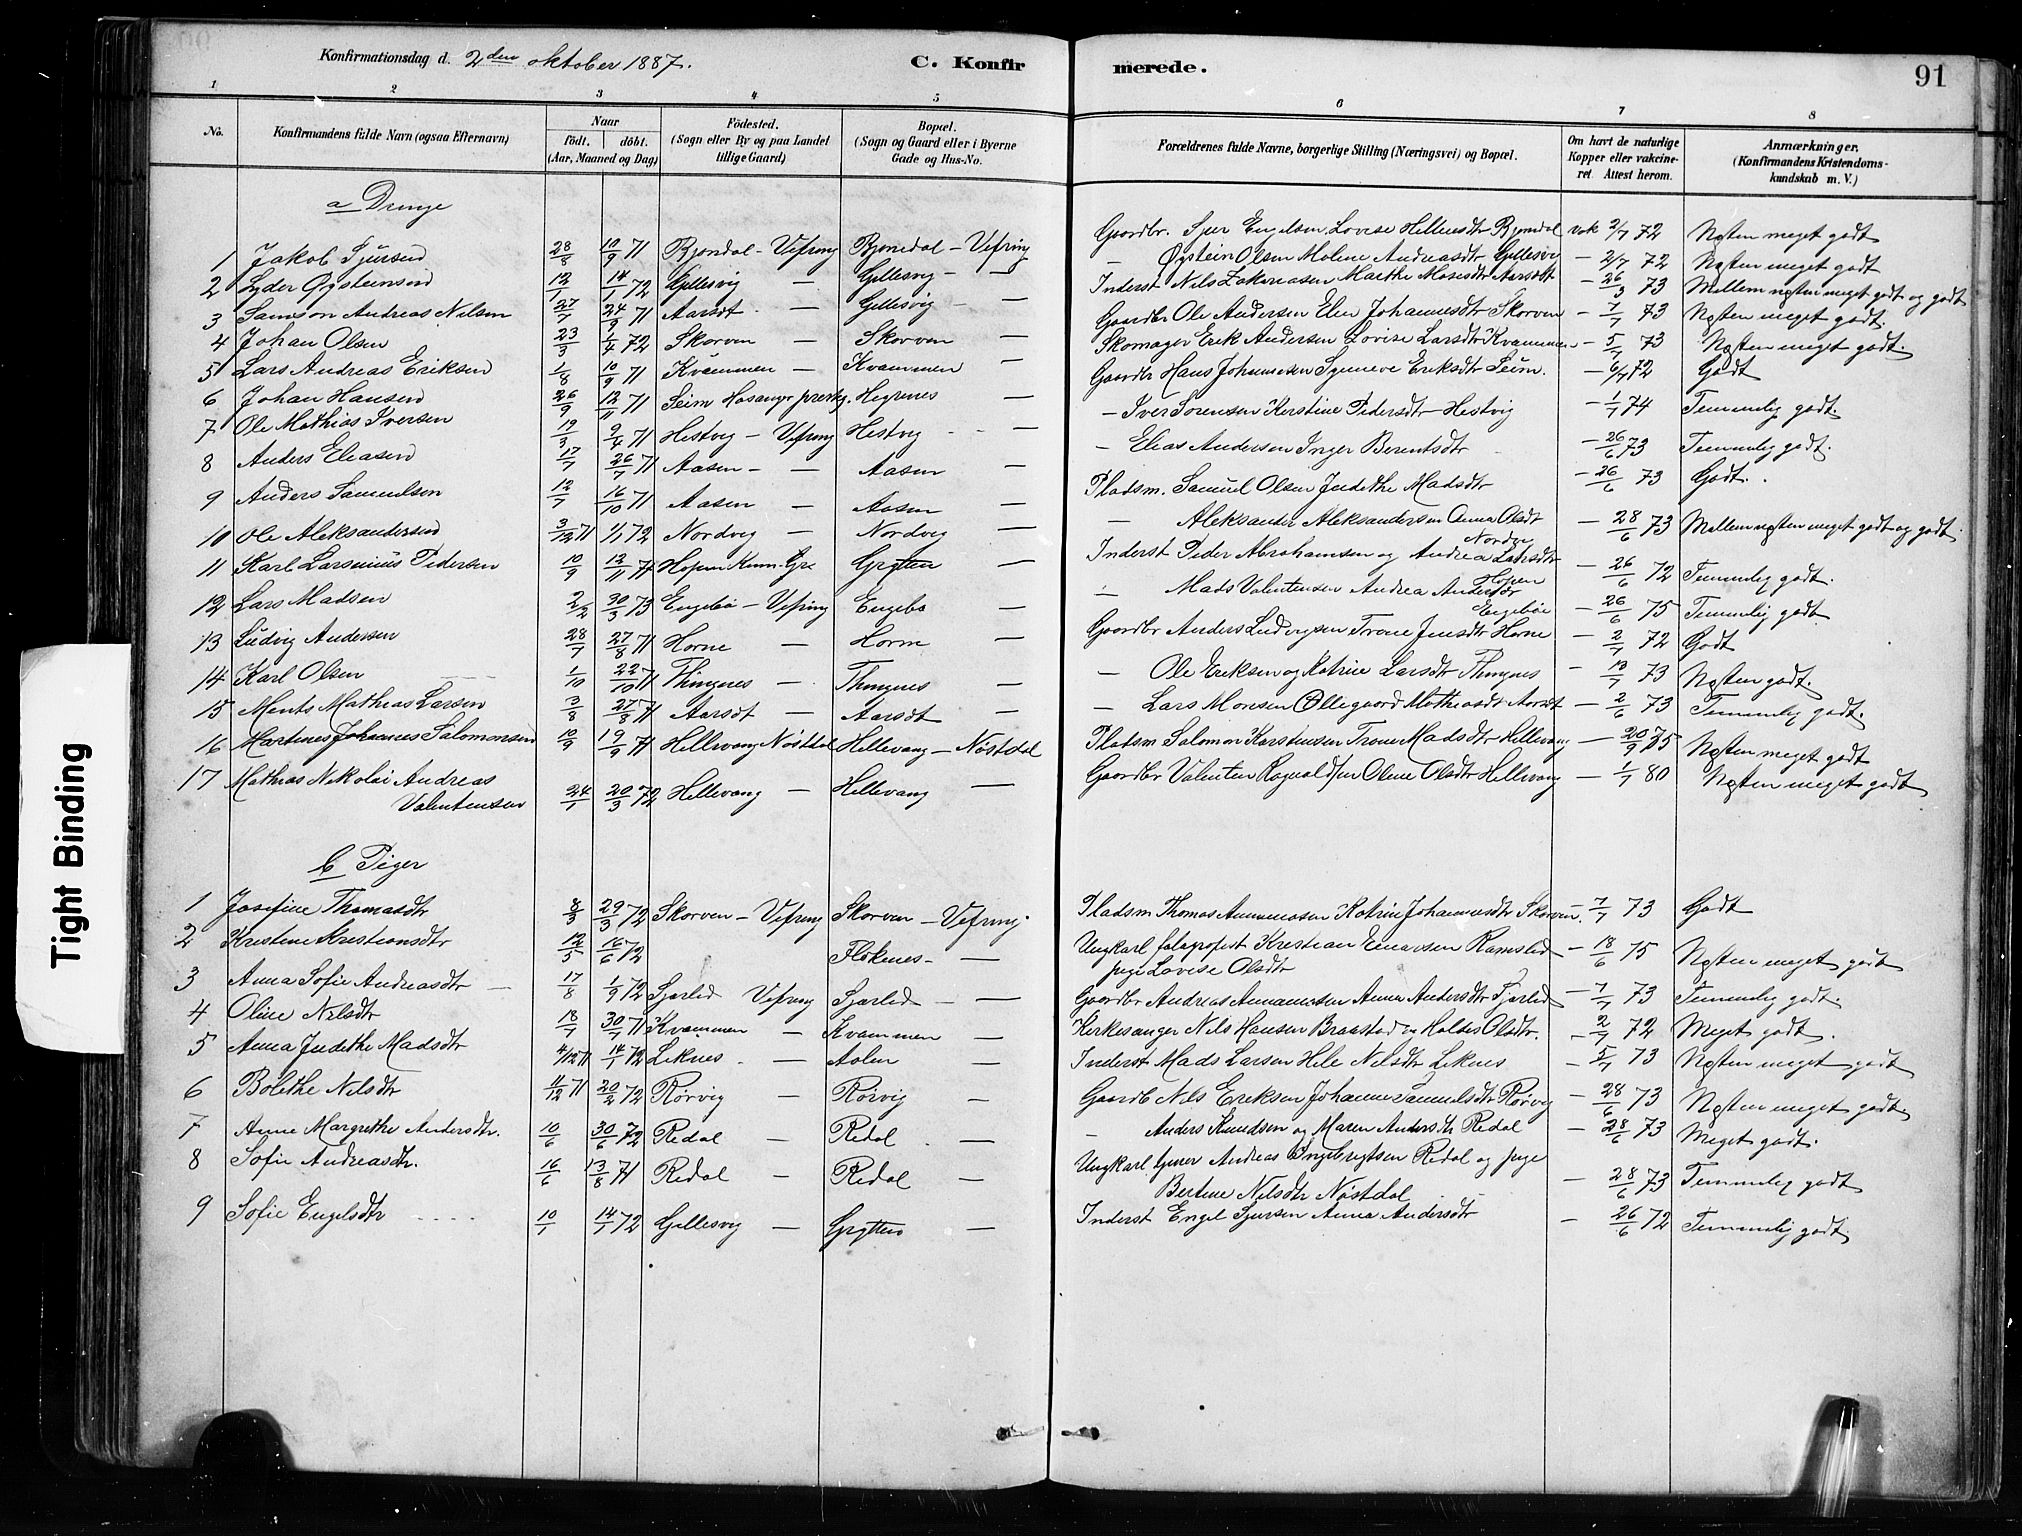 Konfirmationsdag d. 2den oktober 1887.
C. Konfirmerede.
91
1 2 3 4 5 6 7 8
No.
Konfirmandens fulde Navn (ogsaa Efternavn)
Naar födt. döbt. (Aar, Maaned og Dag)
Födested. (Sogn eller By og paa Landet tillige Gaard)
Bopæl. (Sogn og Gaard eller i Byerne Gade og Hus-No.
Forældrenes fulde Navne, borgerlige Stilling (Næringsvei) og Bopæl.
Om havt de naturlige Kopper eller vakcineret. Attest herom.
Anmærkninger. (Konfirmandens Kristendomskundskab m. V.)
a Drenge
1 Jakob Sjursen 28/8 10/9 71 Bjondal - Vefring Bjondal - Vefring Gaardbr. Sjur Engelsen Lovise Hellesdtr Bjondal vak 2/7 72 Næsten meget godt
2 Lyder Øysteinsen 12/1 14/1 72 Gjellesvig — Gjellesvig — — Øystein Olsen Malene Andreasdtr Gjellesvig — 2/7 72 Næsten meget godt
3 Samson Andreas Nilsen 27/7 24/9 71 Aarsdt — Gjellesvig — Inderst Nils Zakariasen Marthe Mosesdtr Aarsdt — 26/3 73 Mellem næsten meget godt og godt
4 Johan Olsen 23/3 1/4 72 Skorven — Skorven — Gaardbr Ole Andersen Elen Johannesdtr Skorven — 1/7 73 Næsten meget godt.
5 Lars Andreas Eriksen 1/8 10/9 71 Kvammen — Kvammen — Skomager Erik Andersen Lovise Larsdtr Kvammen — 5/7 73 Næsten meget godt.
6 Johan Hansen 26/9 12/11 71 Seim Hosanger prestg. Hegrenes — Gaardbr Hans Johannesen Synneve Eriksdtr Seim. — 6/7 72 Godt
7 Ole Mathias Iversen 19/3 9/4 71 Hestvig — Vefring Hestvig — — Iver Sørensen Kerstine Pedersdtr Hestvig — 1/7 74 Temmelig godt.
8 Anders Eliasen 17/7 26/7 71 Aasen — Aasen — — Elias Andersen Inger Berentsdtr — 26/6 73 Temmelig godt.
9 Anders Samuelsen 12/7 16/10 71 Aasen — Aasen — Pladsm. Samuel Olsen Judethe Madsdtr — 26/6 73 Godt.
10 Ole Aleksandersen 3/12 71 1/1 72 Nordvig — Nordvig — — Aleksander Aleksandersen Anna Olsdt — 28/6 73 Mellem næsten meget godt og godt
11 Karl Larsenius Pedersen 10/9 12/11 71 Hopen Grytten — Inderst Peder Abrahamsen og Andrea Larsdtr Hopen — 26/6 72 Temmelig godt.
12 Lars Madsen 2/2 30/3 73 Engebø — Vefring Engebø — — Mads Valentensen Andrea Andersdtr Engebøe — 26/6 75 Temmelig godt
13 Ludvig Andersen 28/7 27/8 71 Horne — Horne — Gaardbr Anders Ludvigsen Trone Jensdtr Horne — 2/7 72 Godt
14 Karl Olsen 1/10 22/10 71 Thingnes — Thingnes — — Ole Eriksen og Katrine Larsdtr Thingnes — 13/7 73 Næsten godt.
15 Ments Mathias Larsen 3/8 27/8 71 Aarsdt — Aarsdt — — Lars Monsen Ollegaard Mathiasdt Aarsdt — 2/6 73 Temmelig godt.
16 Martines Johannes Salomonsen 10/9 19/9 71 Hellevang Nøstdal Hellevang — Nøstdal Pladsm Salomon Karstensen Trone Madsdtr Hellevang — 20/9 75 Næsten meget godt
17 Mathias Nikolai Andreas
Valentensen 24/1 20/3 72 Hellevang — Hellevang — Gaardbr Valenten Ragnaldsen Oline Olsdtr Hellevang — 1/7 80 Næsten meget godt
b Piger
1 Josefine Thomasdtr 8/3 29/3 72 Skorven — Vefring Skorven — Vefring. Pladsm Thomas Ammensen Katrine Johannesdtr Skorven. — 7/7 73 Godt
2 Kristine Kristiansdtr 12/5 16/6 72 Flokenes — Ungkarl Kristian Einarsen Ramslid pige Lovise Olsdtr — 18/6 75 Næsten meget godt
3 Anna Sofie Andreasdtr 17/8 1/9 72 Sjørlid Vefring Sjørlid — Gaardbr Andreas Ananiassen Anna Andersdtr Sjørlid — 7/7 73 Temmelig godt.
4 Oline Nilsdtr 18/7 30/7 71 Kvammen — Kvammen — Kirkesanger Nils Hansen Braastad og Haldis Olsdtr. — 2/7 72 Meget godt.
5 Anna Judethe Madsdtr 4/12 71 14/1 72 Leknes — Aalen — Inderst Mads Larsen Hele Nilsdtr Leknes — 5/7 73 Næsten meget godt
6 Bolethe Nilsdtr 11/12 71 20/2 72 Rørvig — Rørvig — Gaardb Nils Eriksen Johanne Samuelsdtr Rørvig — 28/6 73 Næsten meget godt
7 Anne Margrethe Andersdtr. 10/6 30/6 72 Redal — Redal — — Anders Knudsen og Maren Andersdtr Redal — 28/6 73 Meget godt.
8 Sofie Andreasdtr. 16/6 13/8 71 Redal — Redal — Ungkarl Andreas Ingebrigtsen Redal og pige
Bertine Nilsdtr Nøstdal — 28/6 73 Temmelig godt
9 Sofie Engelsdtr 10/1 14/1 72 Gjellesvig — Grytten — Inderst Engel Sjursen Anna Andersdtr — 26/6 72 Temmelig godt
Tight Binding